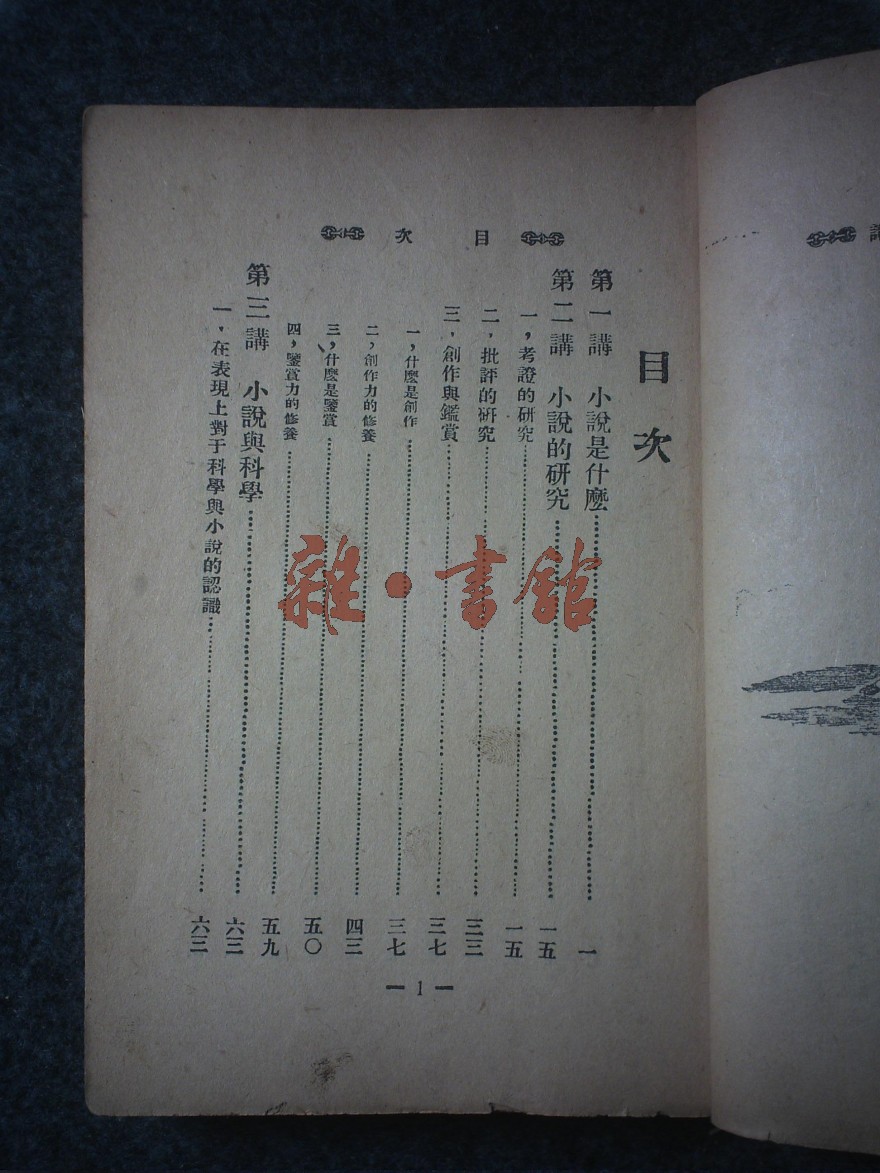 目次
目次
第一講 小說是什麼……一
第二講 小說的研究……一五
一，考證的研究……一五
二，批評的研究……三三
三，創作與鑑賞……三七
一，什麼是創作……三七
二，創作力的修養……四三
三，什麼是鑒賞……五〇
四，鑒賞力的修養……五九
第三講 小說與科學……六三
一，在表現上對于科學與小說的認識……六三
— 1 —
雜·書館